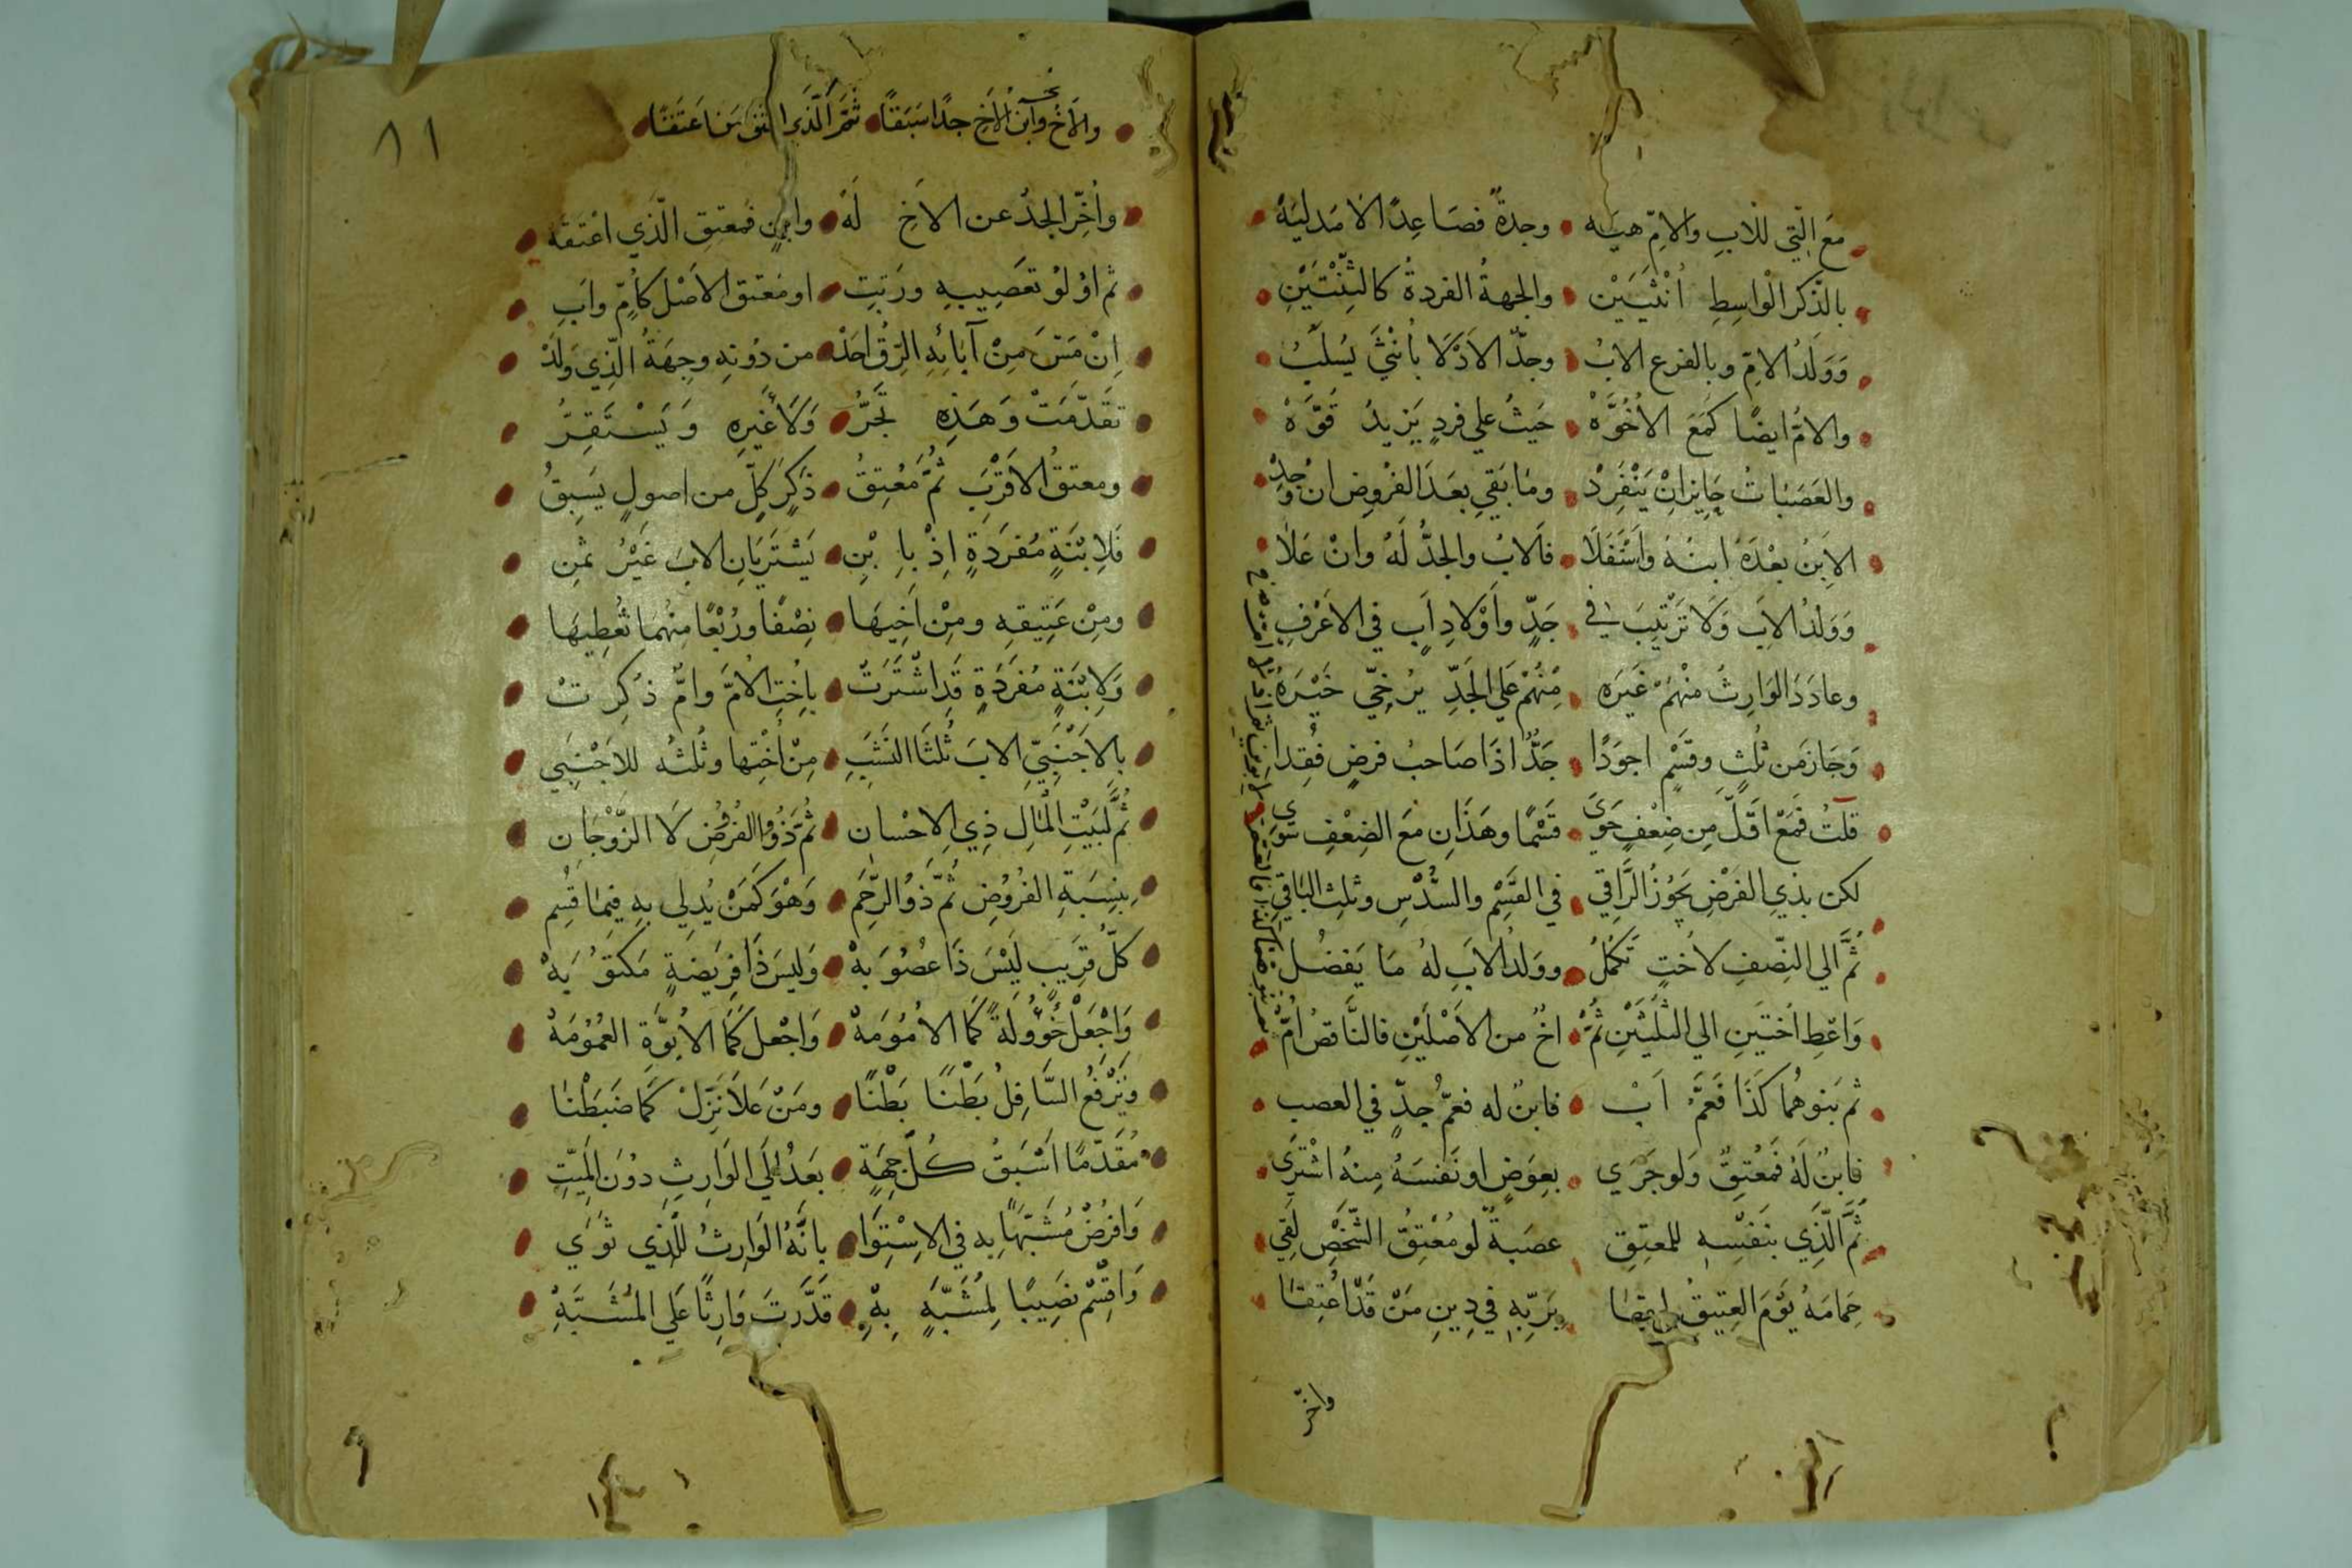 مَعَ الّتِي لِلابِ والامّ هيَه وجدةٌ فصَاعِدًا لا مدليَهْ
بالذّكر الْواسِطِ اُنْثَيَيْن والجهةُ الفردةُ كالثِّنْتَيْنِ
وَوَلَدُ الامّ وبالفرع الابُ وجدّ الادْلَا بأنثَى يُسلَبُ
والامُّ ايضًا كَمَعَ الاُخُوَّهْ حَيثُ علي فردٍ يَزيدُ قُوَّهْ
والعَصَبَاتُ جَايزٌ انْ يَنْفَرِدْ ومَا بَقي بعَدَ الفُروضِ ان وُجِدْ
الاِبنُ بعْدَهُ ابنُهُ واسْتَفَلَا فَالابُ والجدُّ لَهُ وانْ عَلَا
وَوَلدُ الاِبَ وَلَا تَرْتِيبَ في جَدٍّ وَاَوْلادِ اَبٍ في الاَعْرَفِ
وعادَدَ الوَارِثُ منْهُمْ غَيرَه مِنْهُمْ عَلَي الجَدِّ يُرَجّي خَيْرَهُ
وَحَازَ مَن ثُلثٍ وقَسْمٍ اجوَدًا جَدٌّ اذَا صَاحبُ فرضٍ فُقِدا
قلتُ فَمَعْ اقلَّ مِن ضِعْفٍ حَوَي قَسْمًا وهَذَانِ مَعَ الضِعْفِ سَوَي
لكن بذي الفَرْضِ يَحُوزُ الرَّاقي في القَسْمِ والسُّدْسِ وثلثِ البَاقي
ثُمَّ الي النِّصْفِ لاُختٍ تَكمُلُ ووَلدُ الاَبِ لهُ مَا يَفضُل
وَاعْطِ اُختَينِ الي الثلُثَيْنِ ثُمْ اخٌ من الاَصْلَيْنِ فالنَّاقصُ اُمّ
ثم بَنوهُما كَذَا فَعَمُّ اَبْ فابنٌ له فعَمُّ جدٍّ في العصب
فابنٌ لَهُ فَمُعْتِقٌ وَلو جَرَي بعِوَضٍ او نَفسَهُ مِنهُ اشْتَري
ثُمَّ الّذِي بنَفْسِه للمعتِقِ عصَبةً لو مُعْتِقُ الشّخْصِ لَقِي
حِمَامَهُ يَوْمَ العتِيقُ بَرَبّهِ في دِينِ مَنْ قَدْ اُعْتِقَا
واخّر
٨١
والاَخُ وابنُ الاَخِ جدًّا سَبَقَا ثُمَّ الَّذي مَن اَعتَقَا
واُخِّرَ الجدُّ عن الاَخِ لَهُ وابنٍ فمعتِق الّذَي اعْتَقَهُ
ثم اوْلوُ تعَصِيبِهِ ورَتبِ او مُعْتق الاَصْل كاُمٍّ وابِ
اِنْ مَسّ مِنْ آبَائِهِ الرِّقُ احَدْ من دُونهِ وجِهَةُ الّذِي وَلَدْ
تقَدّمَتْ وَهَذِه تَجُرُّ وَلَا لغَيرِهِ وَيَسْتَقِرُّ
ومعتقُ الاَقْرَبِ ثُمَّ مُعْتِقُ ذَكَرِ كلٍّ من اصولٍ يَسبِقُ
فَلِابْنَةٍ مُفرَدَةٍ اِذْ بابْنِ يَشْتَرَيَانِ الابَ غَيْرُ ثمنِ
ومِنْ عَتِيقِهِ ومِنْ اَخِيهَا نِصْفًا ورُبْعًا مِنْهُما تُعْطِيهَا
وَلِابْنَةٍ مُفرَدَةٍ قَدِ اشْتَرَتْ باُختِ لامَّ وامٍّ ذُكِرَتْ
بالاَجْنَبِيّ الابَ ثُلثَا النَشَبِ مِنْ اُخْتِها وثُلثُه للاَجْنَبِي
ثُمَّ لِبَيْتِ المْالِ ذِي الِاحْسان ثُمَّ ذَوُو الفُروُضِ لَا الزَّوْجَانِ
بنِسبَةِ الفُروُضِ ثُمَّ ذوُ الرّحَمِ وَهْوَ كَمَنْ يُدلي بهِ فيمَا قُسِم
كلُّ قرَيبٍ لَيْسَ ذَا عصُوبَهْ وَليسَ ذَا فرِيَضةٍ مَكتوُبَهْ
وَاجْعَلْ خُؤُولَةً كَمَا الاُمُومَهْ وَاجْعلْ كَمَا الاُبُوَّةِ العُمُومَهْ
ويُرْفَعُ السَّافِلُ بَطْنًا بَطْنًا ومَنْ عَلَا نَزَلْ كَمَا ضَبَطْنَا
مُقَدّمًا اَسْبَقُ كُلّ جِهَةِ بعَدُ اِلَي الوَارِثِ دوُنَ المَيّتِ
وَافرُضْ مُشَبّهًا بِه في الاِسْتِوَا بانَّهُ الوَارثُ للّذي ثوَي
وَاقسِمْ نصَيبًا لِمُشَبَّهٍ بِهِ قَدَّرتَ وَارِثًا عَلَي المُشَبَّهِ